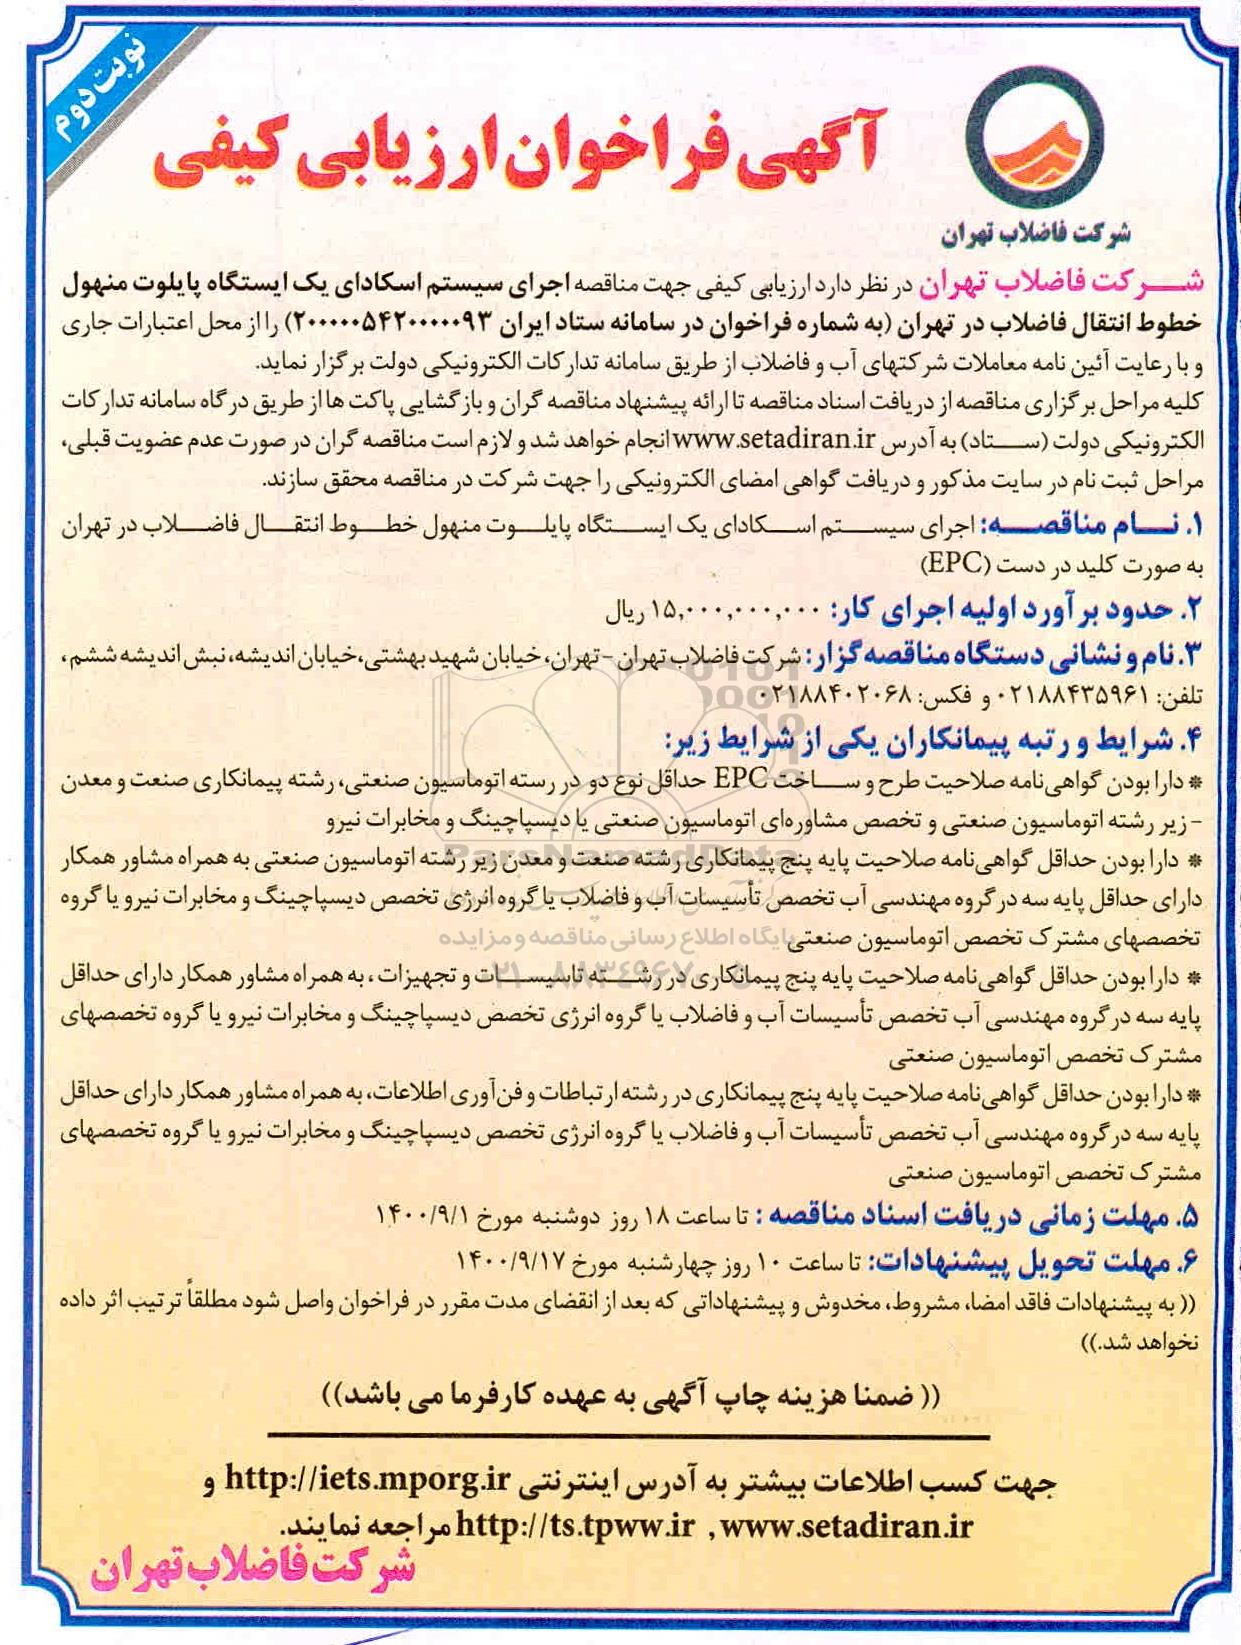 نوبت دوم
آگهی فراخوان ارزیابی کیفی
شرکت فاضلاب تهران
شرکت فاضلاب تهران در نظر دارد ارزیابی کیفی جهت مناقصه اجرای سیستم اسکادای یک ایستگاه پایلوت منهول
خطوط انتقال فاضلاب در تهران (به شماره فراخوان در سامانه ستاد ایران ۲۰۰۰۰۰۵۴۲۰۰۰۰۰۹۳) را از محل اعتبارات جاری
و با رعایت آئین نامه معاملات شرکتهای آب و فاضلاب از طریق سامانه تدارکات الکترونیکی دولت برگزار نماید.
کلیه مراحل برگزاری مناقصه از دریافت اسناد مناقصه تا ارائه پیشنهاد مناقصه گران و بازگشایی پاکت ها از طریق درگاه سامانه تدارکات
الکترونیکی دولت (ستاد) به آدرس www.setadiran.ir انجام خواهد شد و لازم است مناقصه گران در صورت عدم عضویت قبلی،
مراحل ثبت نام در سایت مذکور و دریافت گواهی امضای الکترونیکی را جهت شرکت در مناقصه محقق سازند.
۱. نام مناقصه: اجرای سیستم اسکادای یک ایستگاه پایلوت منهول خطوط انتقال فاضلاب در تهران
به صورت کلید در دست (EPC)
۲. حدود برآورد اولیه اجرای کار: ۱۵,۰۰۰,۰۰۰,۰۰۰ ریال
۳. نام و نشانی دستگاه مناقصه گزار: شرکت فاضلاب تهران - تهران، خیابان شهید بهشتی، خیابان اندیشه، نبش اندیشه ششم،
تلفن: ۰۲۱۸۸۴۳۵۹۶۱ و فکس: ۰۲۱۸۸۴۰۲۰۶۸
۴. شرایط و رتبه پیمانکاران یکی از شرایط زیر:
* دارا بودن گواهی‌نامه صلاحیت طرح و ساخت EPC حداقل نوع دو در رسته اتوماسیون صنعتی، رشته پیمانکاری صنعت و معدن
- زیر رشته اتوماسیون صنعتی و تخصص مشاوره‌ای اتوماسیون صنعتی یا دیسپاچینگ و مخابرات نیرو
* دارا بودن حداقل گواهی‌نامه صلاحیت پایه پنج پیمانکاری رشته صنعت و معدن زیر رشته اتوماسیون صنعتی به همراه مشاور همکار
دارای حداقل پایه سه در گروه مهندسی آب تخصص تأسیسات آب و فاضلاب یا گروه انرژی تخصص دیسپاچینگ و مخابرات نیرو یا گروه
تخصصهای مشترک تخصص اتوماسیون صنعتی
* دارا بودن حداقل گواهی‌نامه صلاحیت پایه پنج پیمانکاری در رشته تاسیسات و تجهیزات، به همراه مشاور همکار دارای حداقل
پایه سه در گروه مهندسی آب تخصص تأسیسات آب و فاضلاب یا گروه انرژی تخصص دیسپاچینگ و مخابرات نیرو یا گروه تخصصهای
مشترک تخصص اتوماسیون صنعتی
* دارا بودن حداقل گواهی‌نامه صلاحیت پایه پنج پیمانکاری در رشته ارتباطات و فن‌آوری اطلاعات، به همراه مشاور همکار دارای حداقل
پایه سه در گروه مهندسی آب تخصص تأسیسات آب و فاضلاب یا گروه انرژی تخصص دیسپاچینگ و مخابرات نیرو یا گروه تخصصهای
مشترک تخصص اتوماسیون صنعتی
۵. مهلت زمانی دریافت اسناد مناقصه: تا ساعت ۱۸ روز دوشنبه مورخ ۱۴۰۰/۹/۱
۶. مهلت تحویل پیشنهادات: تا ساعت ۱۰ روز چهارشنبه مورخ ۱۴۰۰/۹/۱۷
(( به پیشنهادات فاقد امضا، مشروط، مخدوش و پیشنهاداتی که بعد از انقضای مدت مقرر در فراخوان واصل شود مطلقاً ترتیب اثر داده
نخواهد شد.))
(( ضمنا هزینه چاپ آگهی به عهده کارفرما می باشد))
جهت کسب اطلاعات بیشتر به آدرس اینترنتی http://iets.mporg.ir و
http://ts.tpww.ir , www.setadiran.ir مراجعه نمایند.
شرکت فاضلاب تهران
ParsNamadData
پایگاه اطلاع رسانی مناقصه و مزایده